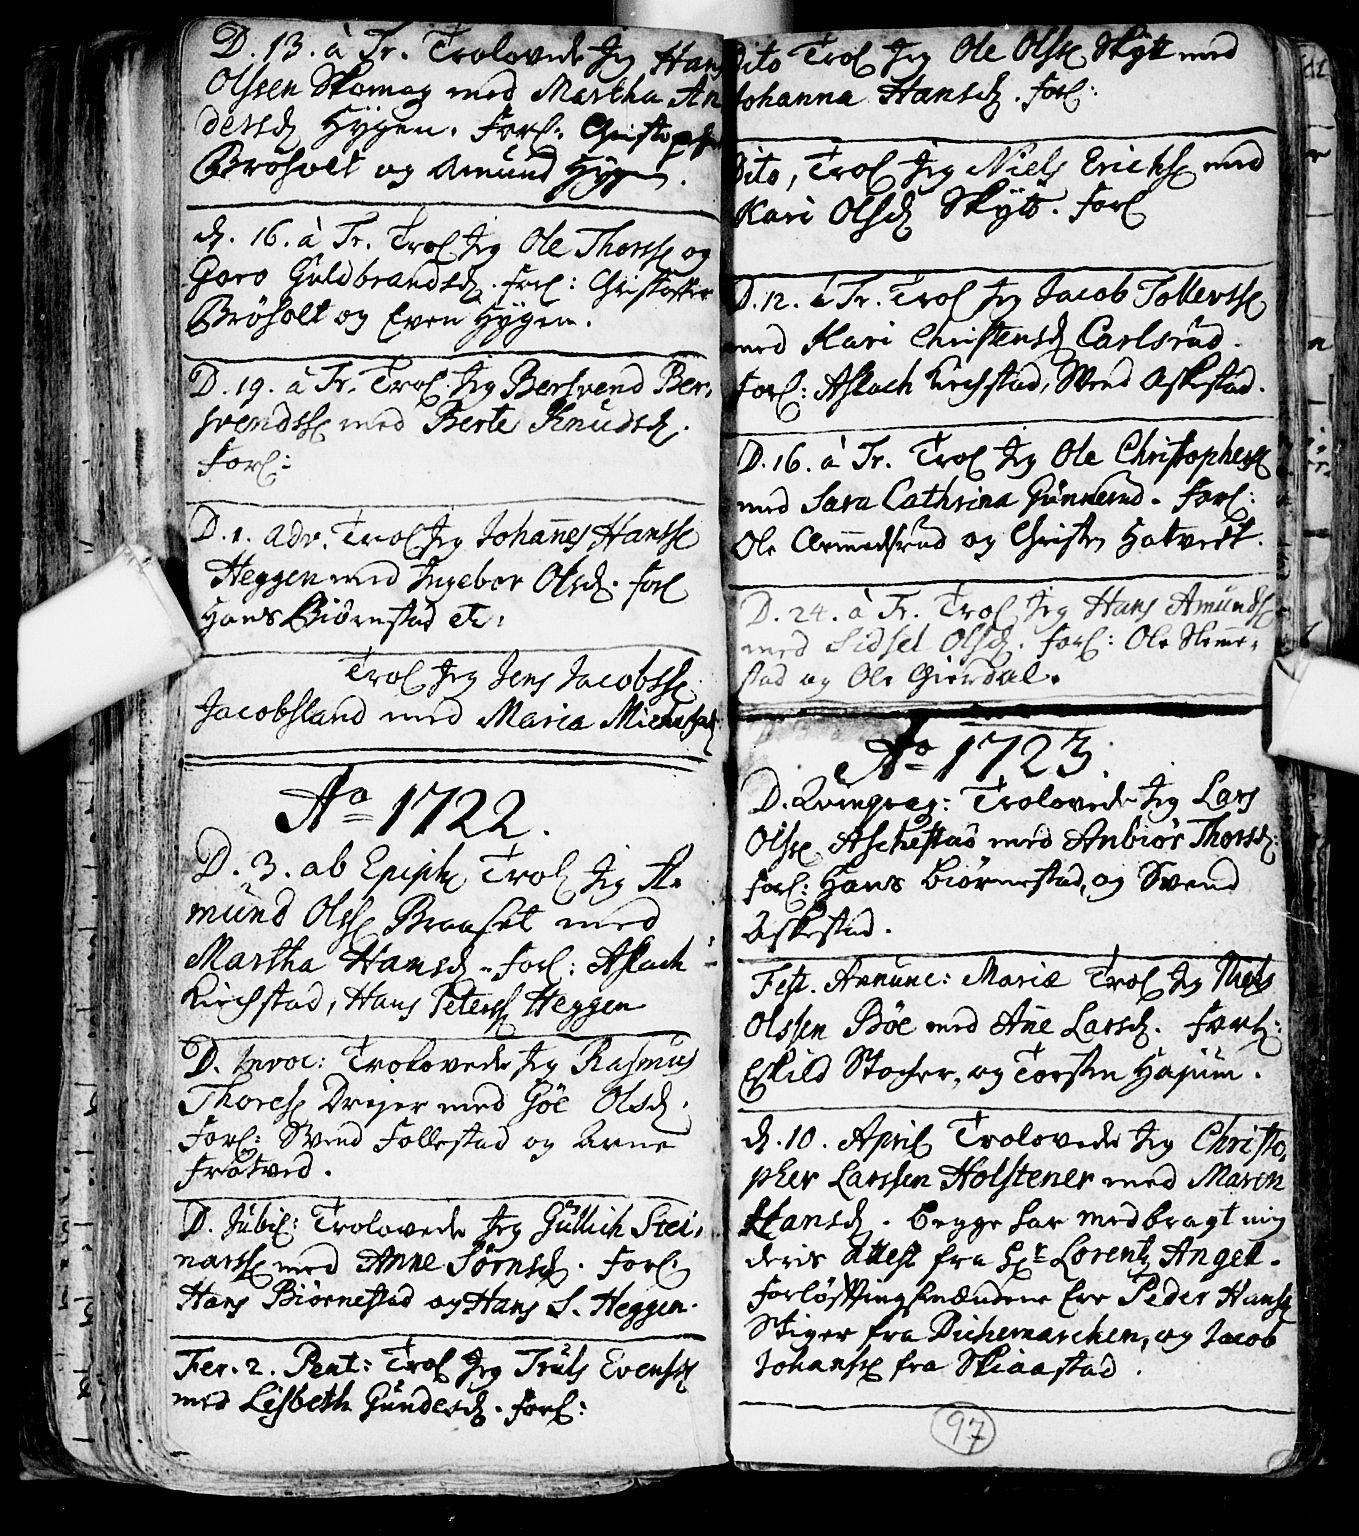 D. 13. à Tr. Trolovede Jeg Hans
Olssen Skomag med Martha An
dersd Hygen. Forl: Christopher
Bröholt og Amund Hygen.
d. 16. à Tr. Trol Jeg Ole Thorss og
Goro Guldbrandsd. forl: Christopher
Bröholt og Even Hygen.
D. 19. à Tr. Trol Jeg Bersvend Ber,
svendss med Berte Knudsd.
Forl:
D. 1. Adv. Trol Jeg Johanes Hanss
Heggen med Ingebor Olsd. forl
Hans Biörnstad etc:
Trol Jeg Jens Jacobss
Jacobsland med Maria
Ao 1722.
D. 3. ab Epiph Trol Jeg A.
mund Olss Braaset med
Martha Hansd. forl: Aslach
Kirchstad, Hans Peterss Heggen
D. Invoc: Trolovede Jeg Rasmus
Thoress Drejer med Göe Olsd.
Forl: Svend Follestad og Arne
Fråtved.
D. Jubil: Trolovede Jeg Gullich Stei,
narss med Anne Sörnsd. Forl:
Hans Biörnestad og Hans S. Heggen.
Fer. 2. Pent: Trol Jeg Truls Evenss
med Lisbeth Gundersd. forl:
Dito Trol Jeg Ole Olss Skytt med
Johanna Hansd. forl:
Dito, Trol Jeg Niels Erichs med
Kari Olsd Skytt. forl
D. 12. à Tr. Trol Jeg Jacob Tollevss
med Kari Christensd Carlsrud.
forl: Aslach Kirchstad, Svend Askestad.
D. 16. à Tr. Trol Jeg Ole Christophers
med Sara Cathrina Gunnerud. forl:
Ole Clemmedsrud og Christen Hatvedt.
D. 24. à Tr. Trol Jeg Hans Amunds
med Sidsel Olsd. forl: Ole Sleme,
stad og Ole Gierdal.
Ao 1723.
D. Qvinqvag: Trolovede Jeg Lars
Olss Aschestad med Anbiör Thorsd:
forl: Hans Biörnestad, og Svend
Askestad.
Fest. Annunc: Mariæ Trol Jeg Niels
Olssen Böe med Ane Larsd. Forl:
Eskild Stocker, og Torsten Hajum.
d. 10. April Trolovede Jeg Christo,
pher Larssen Holstener med Maren
Hansd. begge har medbragt mig
deris attest fra Hr Lorentz Angell.
Forlöftningsmændene ere Peder Hanss
Stiger fra Dichemarchen, og Jacob
Johanss fra Skiaastad.
97